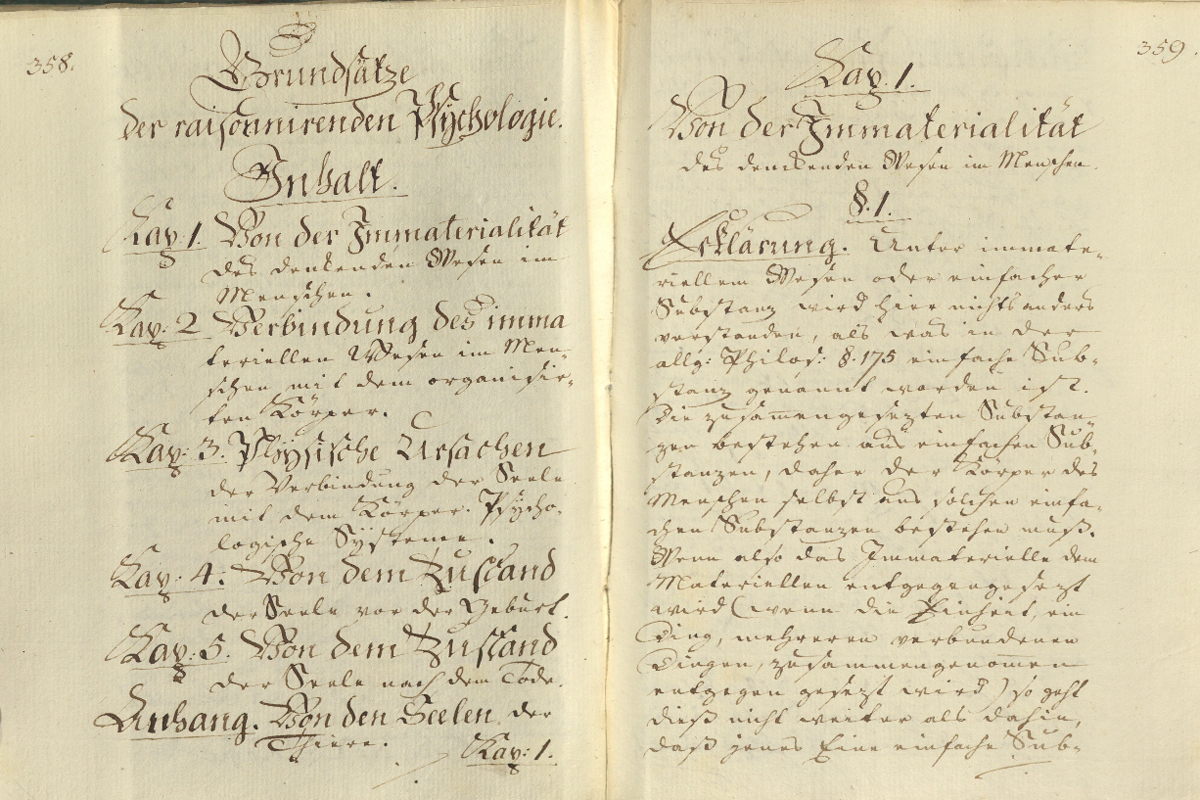 358.
Grundsätze
der raisonnirenden Psychologie.
Inhalt.
Kap. 1. Von der Immaterialität
des denkenden Wesen im
Menschen.
Kap: 2 Verbindung des imma
teriellen Wesen im Men-
schen mit dem organisir-
ten Körper.
Kap: 3. Physische Ursachen
der Verbindung der Seele
mit dem Körper. Psycho-
logische Systeme.
Kap: 4: Von dem Zustand
der Seele vor der Geburt.
Kap: 5. Von dem Zustand
der Seele nach dem Tode.
Anhang. Von den Seelen der
Thiere.
Kap: 1.
359.
Kap. 1.
Von der Immaterialität
des denkenden Wesen im Menschen.
§. 1.
Erklärung. Unter immate-
riellem Wesen oder einfacher
Substanz wird hier nichts anders
verstanden, als was in der
allg: Philos: §. 175 einfache Sub-
stanz genannt worden ist.
Die zusam̄engesezten Substan
zen bestehen aus einfachen Sub-
stanzen, daher der Körper des
Menschen selbst aus solchen einfa-
chen Substanzen bestehen muß.
Wenn also das Immaterielle dem
Materiellen entgegengesezt
wird (wenn die Einheit, ein
Ding, mehreren verbundenen
Dingen, zusammengenom̄en
entgegen gesezt wird) so geht
dieß nicht weiter als dahin,
daß jenes Eine einfache Sub-